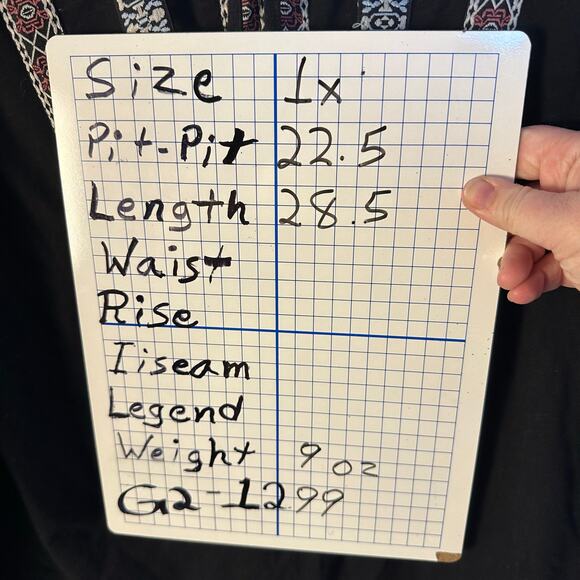 Size 1x
Pit-Pit 22.5
Length 28.5
Waist
Rise
Iiseam
Legend
Weight 9 oz
G2-1299